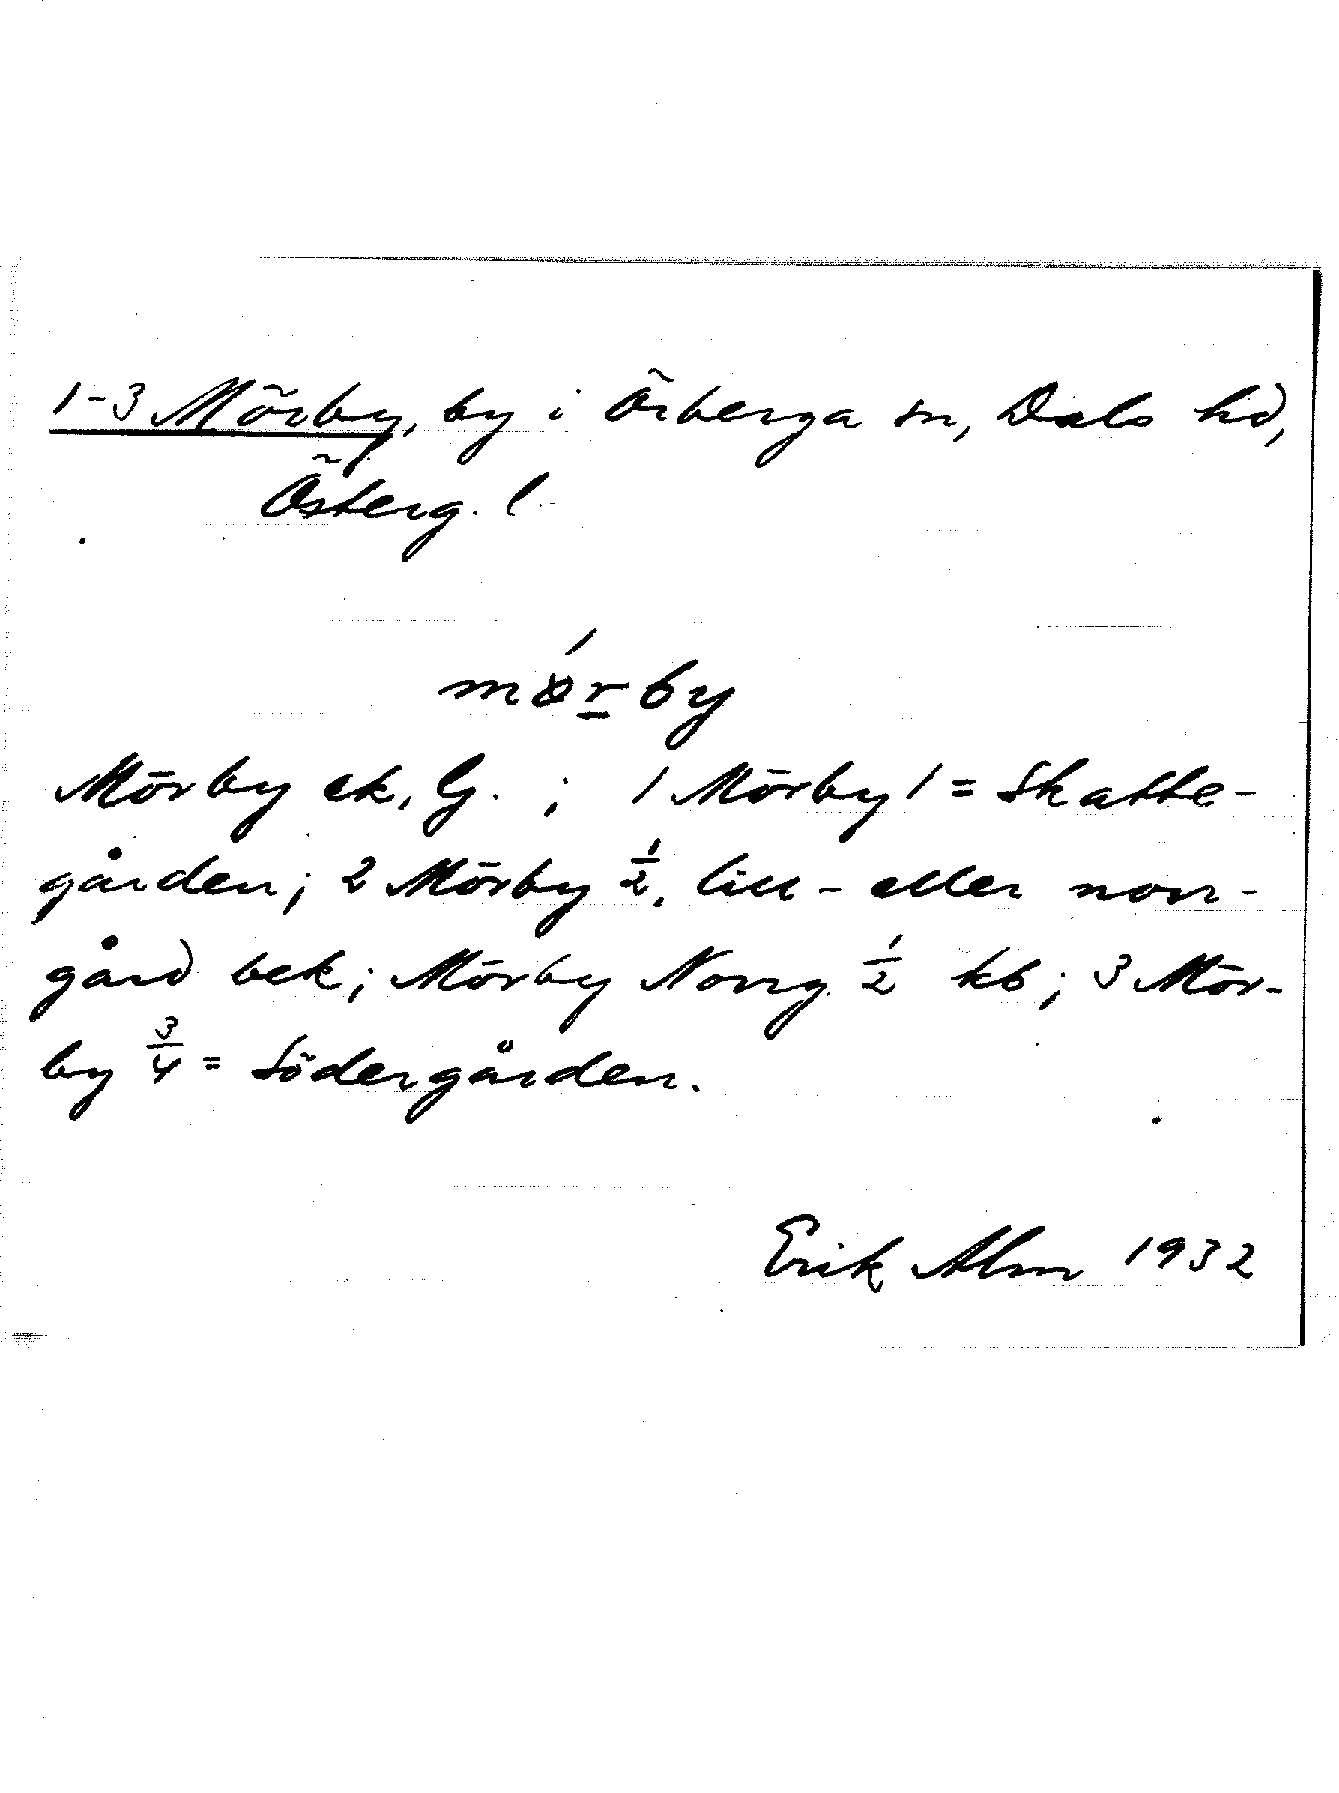 1-3 Mörby, by i Örberga sn, Dals hd,
Österg. l.
mǿrby
Mörby ek, G. ; 1 Mörby 1 = Skatte-
gården; 2 Mörby ½, lill- eller norr-
gård bek; Mörby Norrg. ½ kb; 3 Mör-
by ¾ = Södergården.
Erik Alm 1932